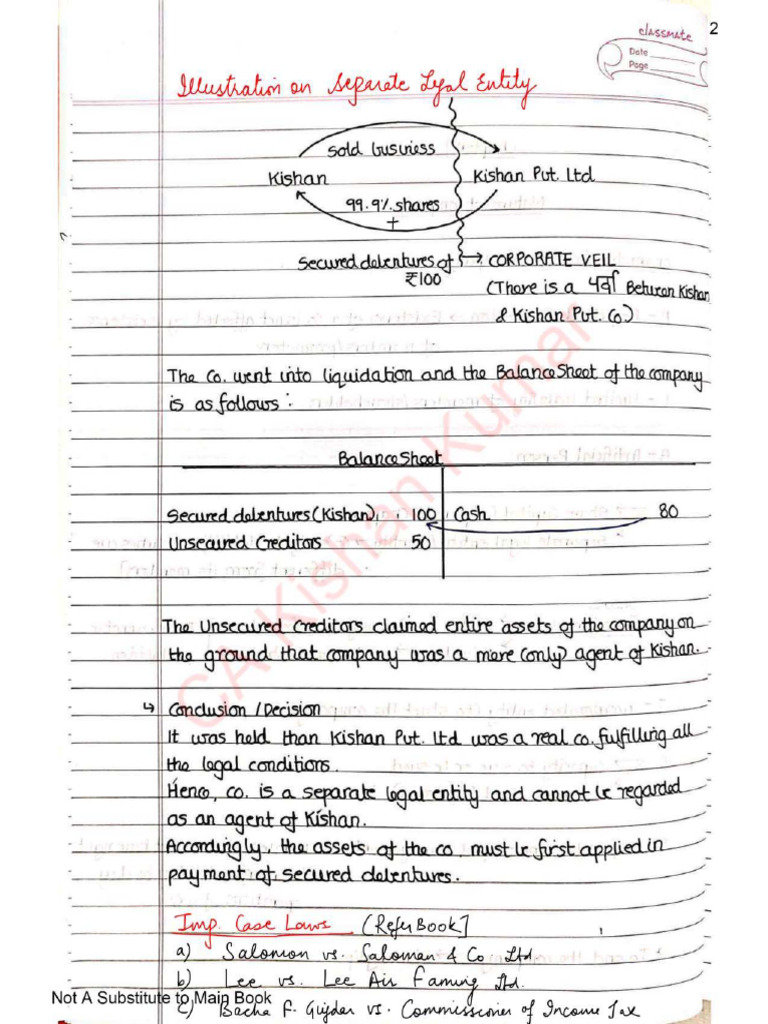 2
classmate
Date
Page
Illustration on Separate Legal Entity
Sold business
Kishan
Kishan Pvt. Ltd
99.9% shares
+
Secured debentures of → CORPORATE VEIL
₹100
(There is a पर्दा Between Kishan
& Kishan Put. Co)
The Co. went into liquidation and the Balance Sheet of the company
is as follows:
Balance Sheet
Secured debentures (Kishan) 100 Cash 80
Unsecured Creditors 50
The Unsecured Creditors claimed entire assets of the company on
the ground that company was a mere (only) agent of Kishan.
↳ Conclusion / Decision
It was held than Kishan Put. Ltd was a real co. fulfilling all
the legal conditions.
Hence, co. is a separate legal entity and cannot be regarded
as an agent of Kishan.
Accordingly, the assets of the co. must be first applied in
payment of secured debentures.
Imp. Case Laws [Refer Book]
a) Salomon vs. Saloman & Co Ltd
b) Lee vs. Lee Air Faming Ltd.
c) Bacha F. Guzdar vs. Commissioner of Income Tax
Not A Substitute to Main Book
CA Kishan Kumar